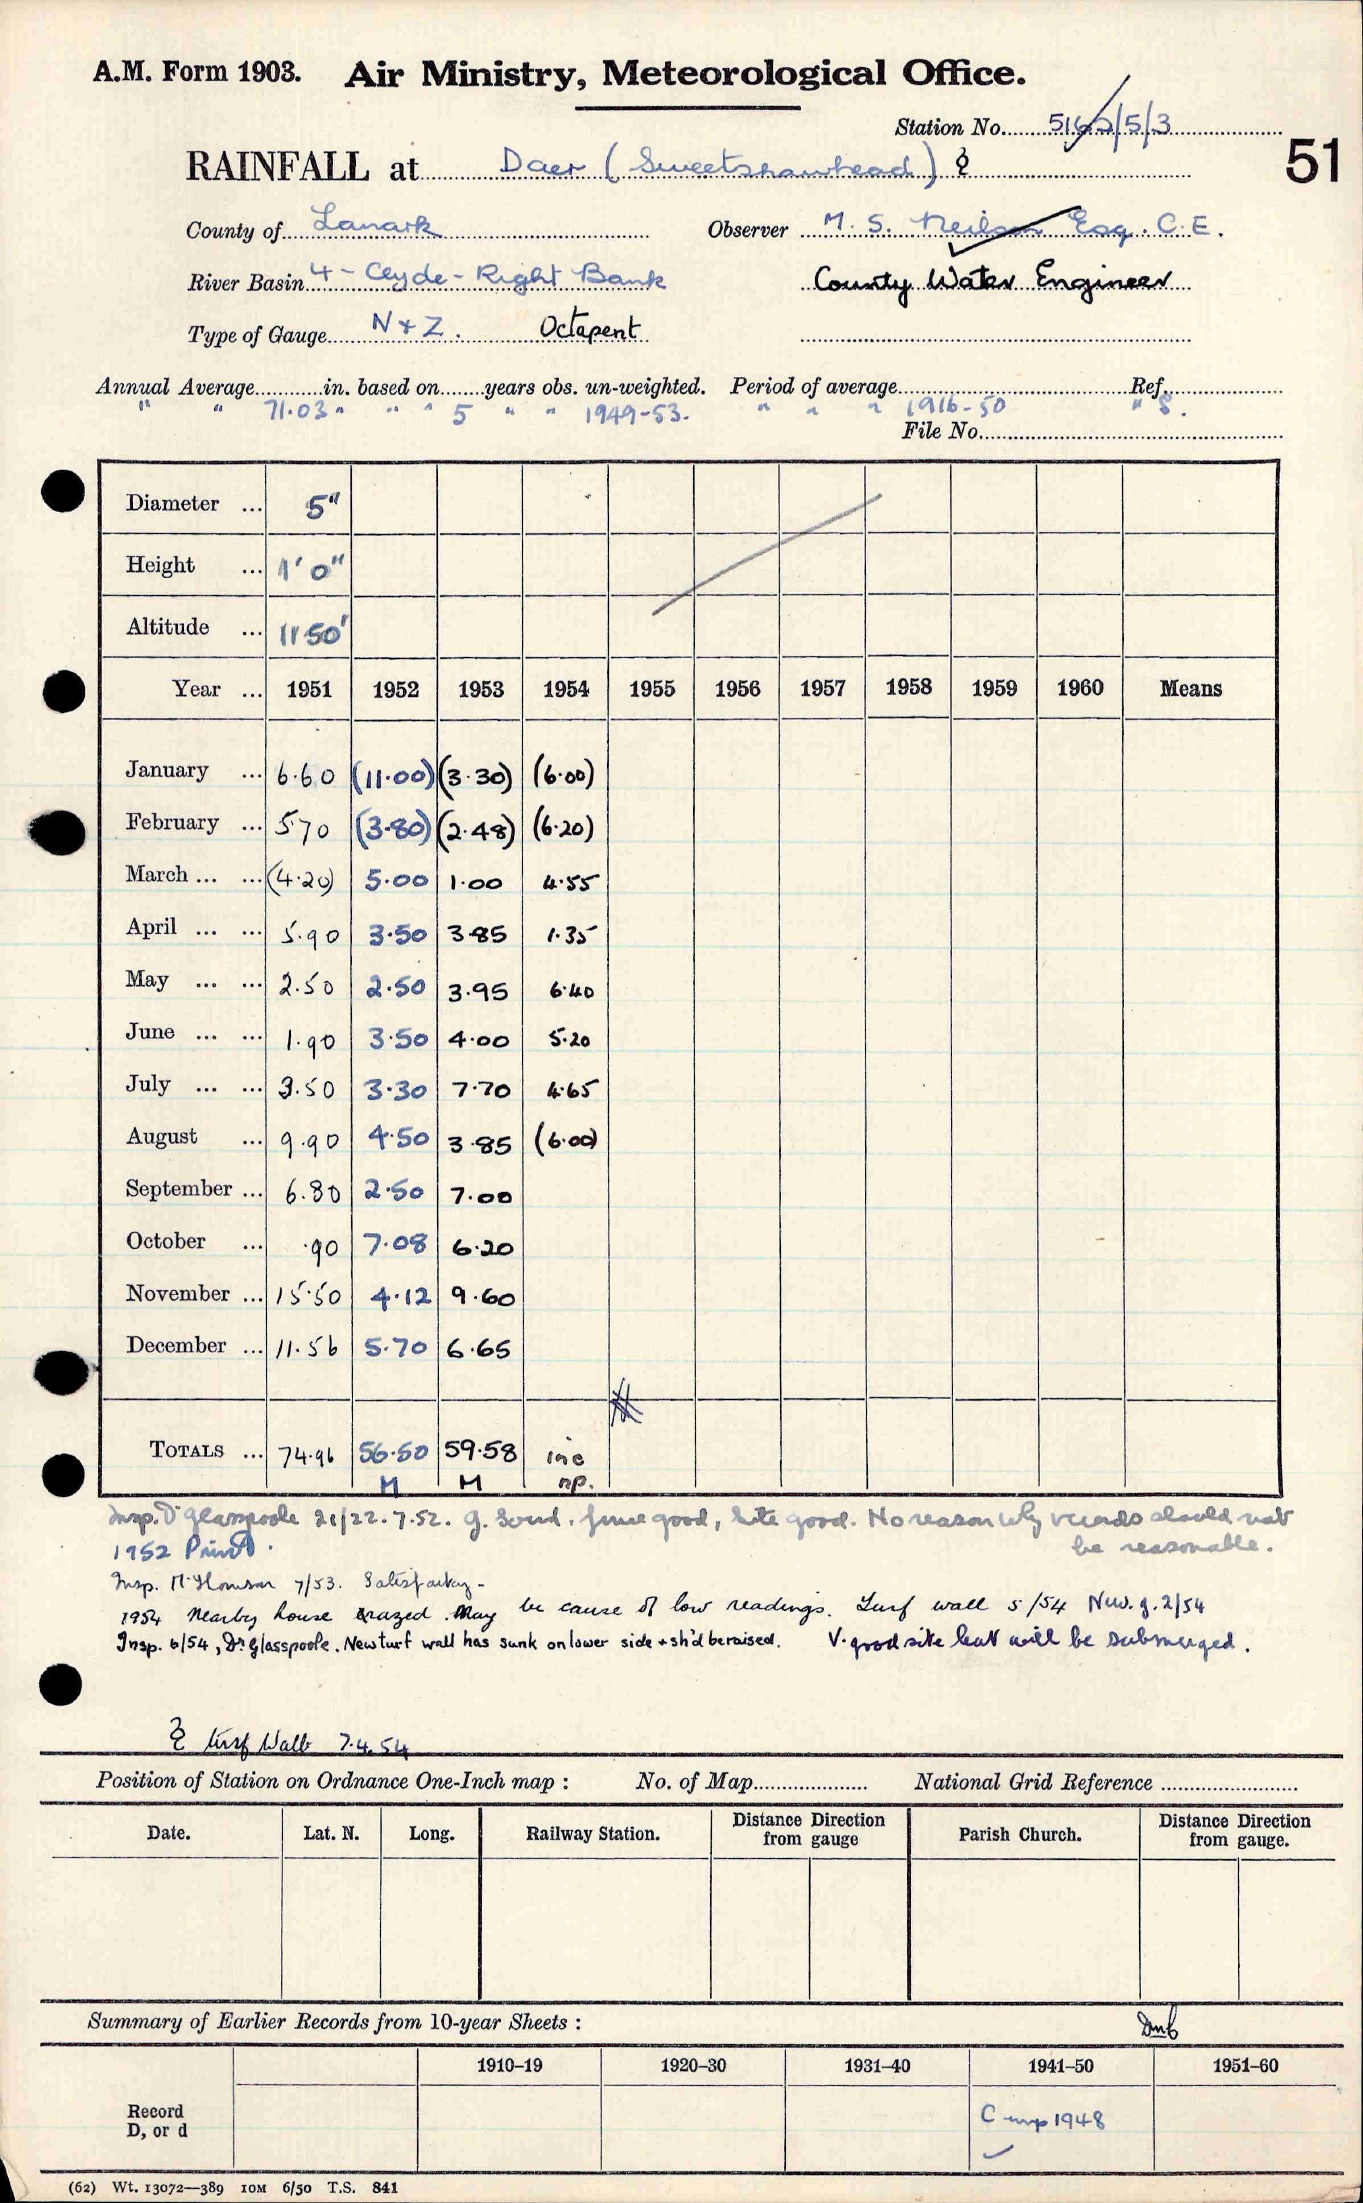 A.M. Form 1903. Air Ministry, Meteorological Office.
Station No. 5162/5/3
51
RAINFALL at Daer (Sweetshawhead) ξ
County of Lanark Observer M. S. Neilson Esq. C.E.
River Basin 4 - Clyde - Right Bank County Water Engineer
Type of Gauge N + Z. Octapent
Annual Average in. based on years obs. un-weighted. Period of average Ref.
" " 71.03 " " " 5 " " 1949-53. " " " 1916-50 " S.
File No.
Diameter ... 5"
Height ... 1' 0"
Altitude ... 1150'
Year ... 1951 1952 1953 1954 1955 1956 1957 1958 1959 1960 Means
January ... 6.60 (11.00) (3.30) (6.00)
February ... 5.70 (3.80) (2.48) (6.20)
March ... ... (4.20) 5.00 1.00 4.55
April ... ... 5.90 3.50 3.85 1.35
May ... ... 2.50 2.50 3.95 6.40
June ... ... 1.90 3.50 4.00 5.20
July ... ... 3.50 3.30 7.70 4.65
August ... 9.90 4.50 3.85 (6.00)
September ... 6.80 2.50 7.00
October ... .90 7.08 6.20
November ... 15.50 4.12 9.60
December ... 11.56 5.70 6.65
TOTALS ... 74.96 56.50 59.58 inc
M M np.
Insp. Dr Glasspoole 21/22.7.52. g. Good. fence good, Site good. No reason why records should not
1952 Printed. be reasonable.
Insp. Mr Thomson 7/53. Satisfactory -
1954 Nearby house razed. May be cause of low readings. Turf wall 5/54 New. g. 2/54
Insp. 6/54, Dr. Glasspoole. New turf wall has sunk on lower side + sh'd be raised. V. good site but will be submerged.
ξ turf Wall 7.4.54
Position of Station on Ordnance One-Inch map : No. of Map National Grid Reference
Date. Lat. N. Long. Railway Station. Distance Direction from gauge Parish Church. Distance Direction from gauge.
Summary of Earlier Records from 10-year Sheets :
1910–19 1920–30 1931–40 1941–50 1951–60
Record
D, or d
C 1948
(62) Wt. 13072—389 10M 6/50 T.S. 841